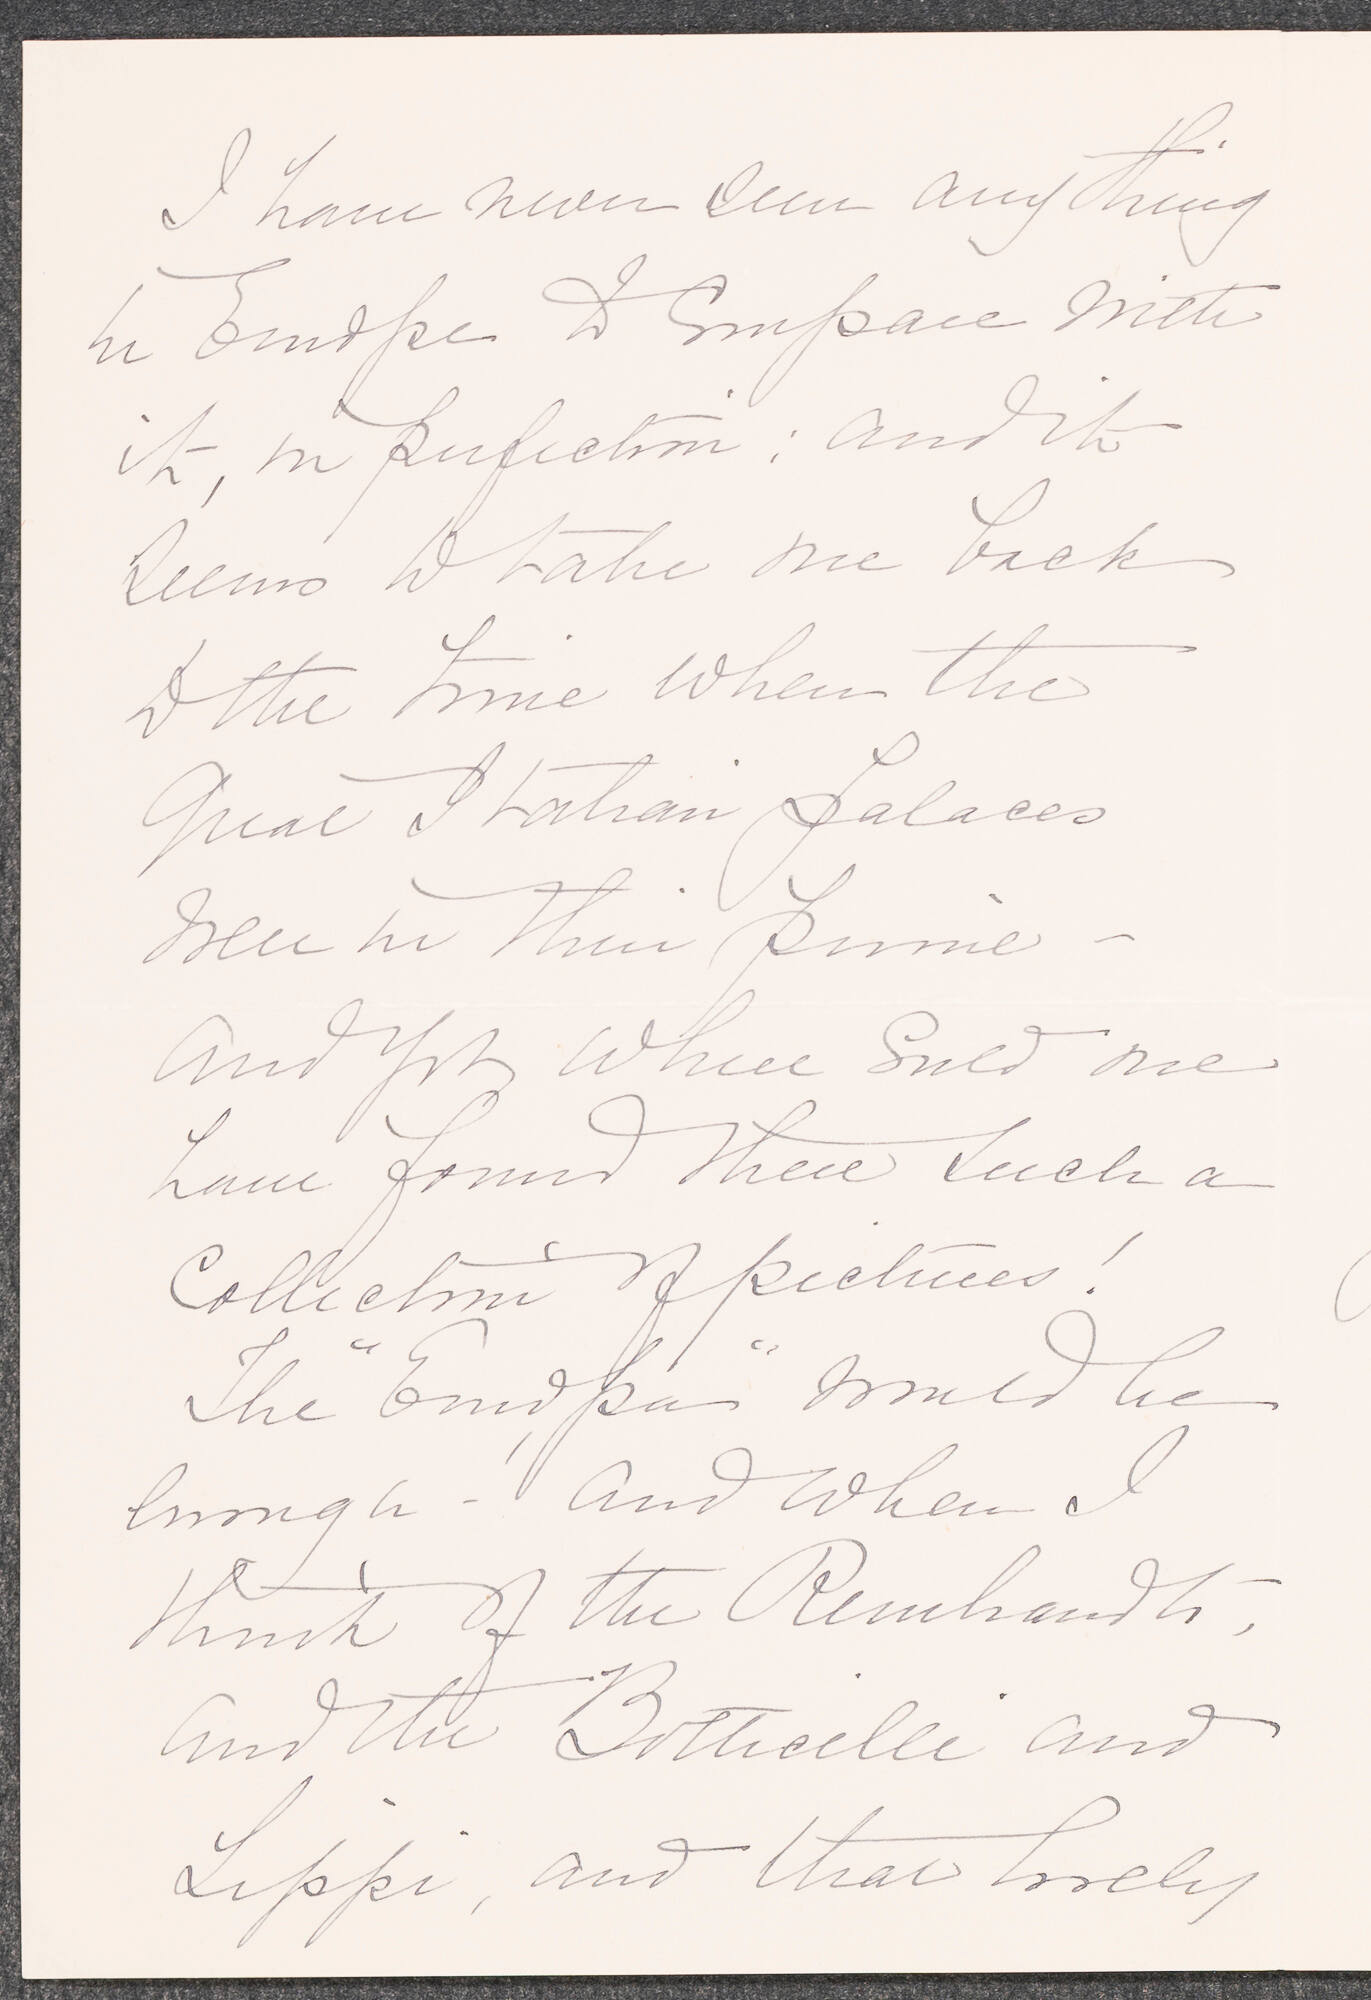 I have never seen anything
in Europe to compare with
it, in perfection; and it
seems to take me back
to the time when the
great Italian Palaces
were in their prime –
and yet where could one
have found there such a
collection of pictures!
The "Europa" would be
enough – and when I
think of the Rembrandts,
and the Botticelli and
Lippi, and that lovely